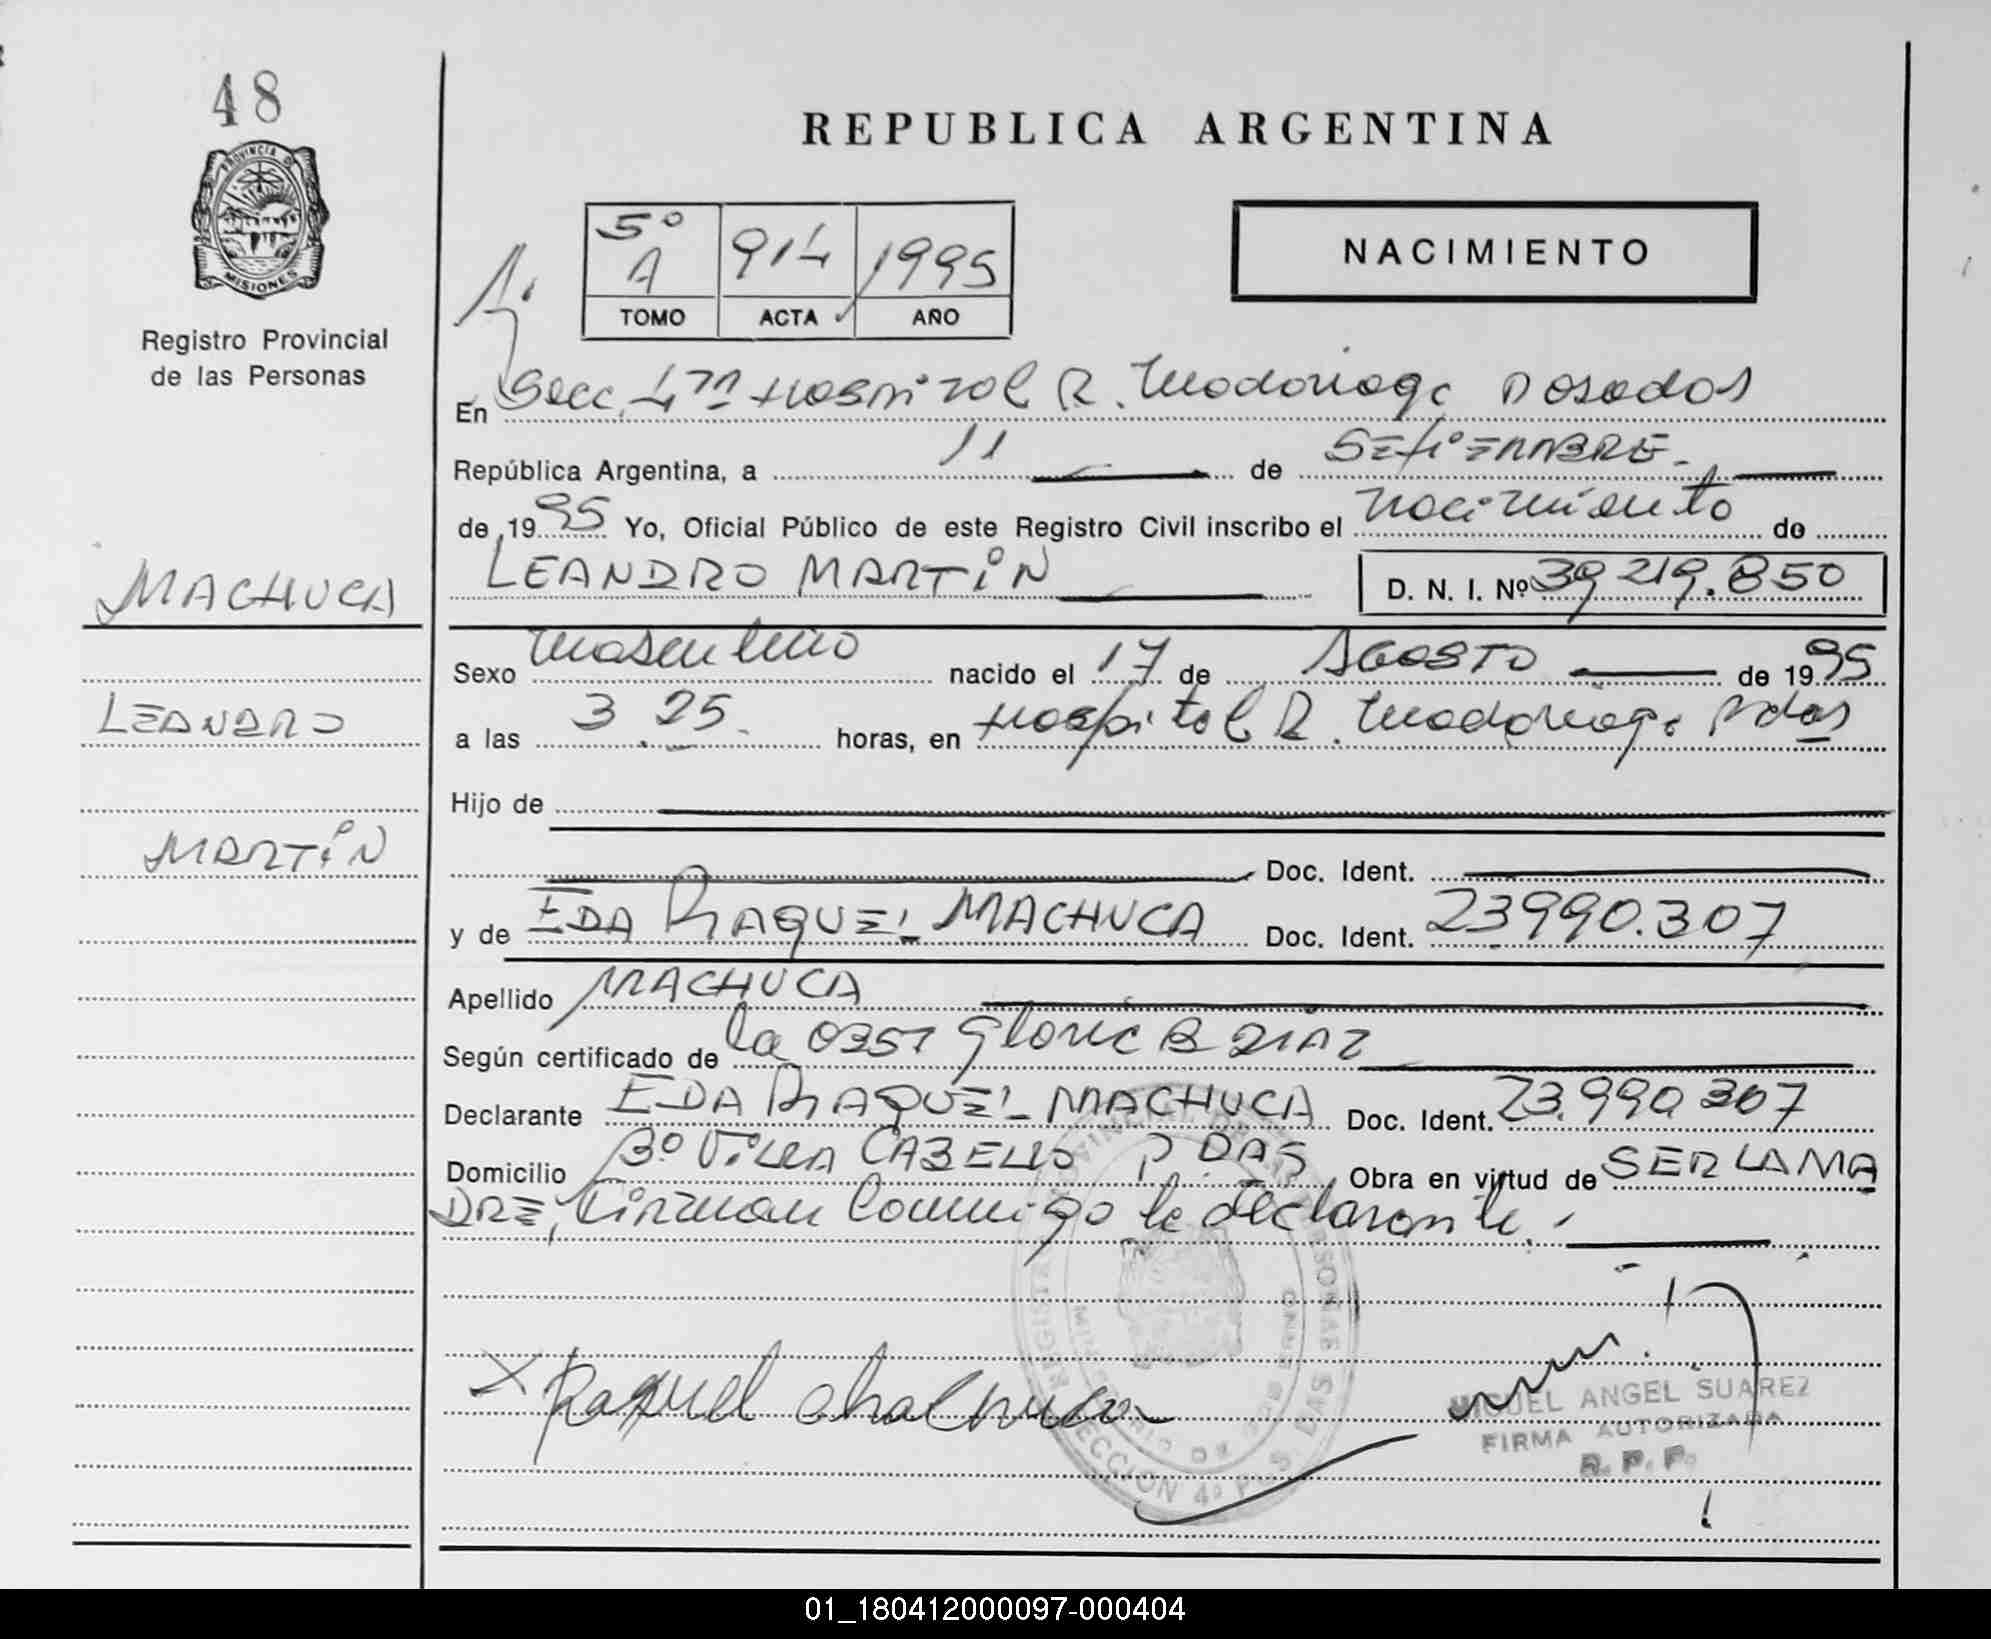 48
PROVINCIA D
MISIONES
Registro Provincial
de las Personas
MACHUCA
LEANDRO
MARTÍN
REPUBLICA ARGENTINA
5º A 914 1995
TOMO ACTA AÑO
NACIMIENTO
En Secc. 4ta Hospital R. Madariaga Posadas
República Argentina, a 11 de SEtiEMBRE.
de 1995 Yo, Oficial Público de este Registro Civil inscribo el nacimiento de
LEANDRO MARTíN D. N. I. Nº 39 219.850
Sexo masculino nacido el 17 de AGOSTO de 1995
a las 3.25. horas, en Hospital R. Madariaga Pdas
Hijo de
Doc. Ident.
y de EDA RAQUEL MACHUCA Doc. Ident. 23990.307
Apellido MACHUCA
Según certificado de la OBST Gloria B DIAZ
Declarante EDA RAQUEL MACHUCA Doc. Ident. 23.990 307
Domicilio Bº ViLLA CABELLO PDAS Obra en virtud de SER LA MA
DRE, Firman conmigo la declarante.
X Raquel Machuca
MIGUEL ANGEL SUAREZ
FIRMA AUTORIZADA
R. P. P.
SECCION 4º
01_180412000097-000404